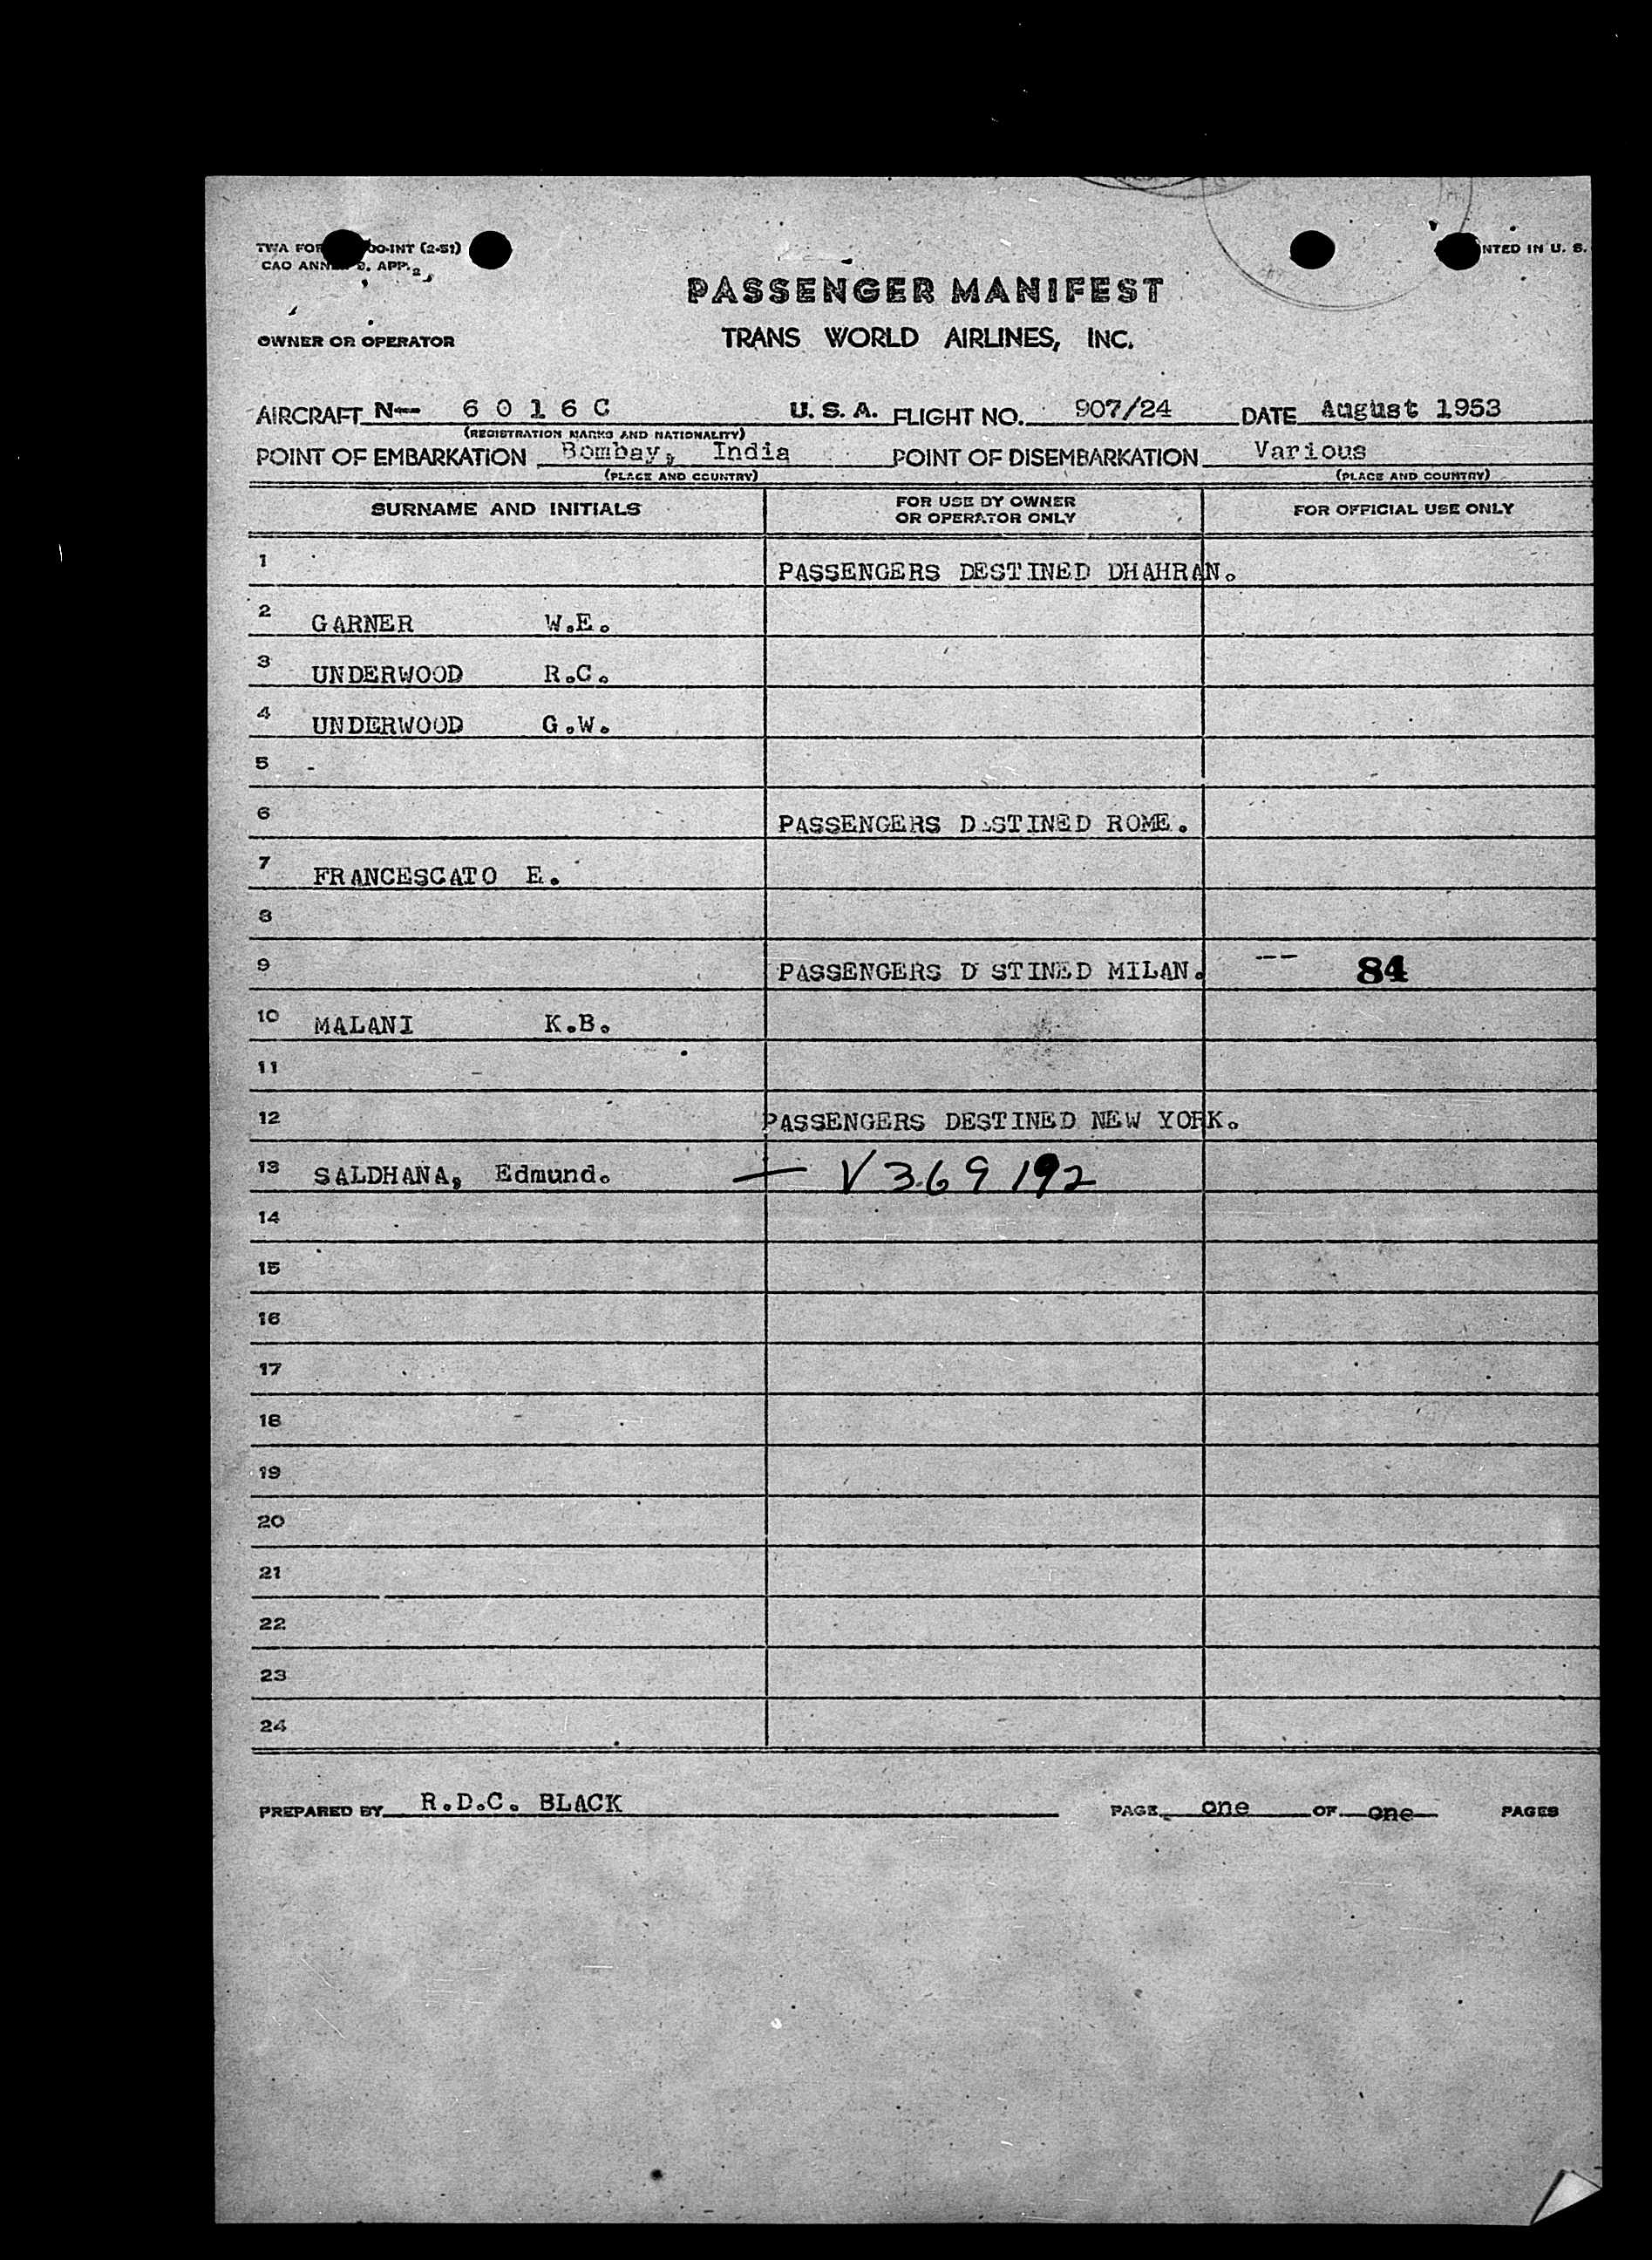 TWA FOR 00-INT (2-51) NTED IN U. S.
CAO ANNE 9, APP. 2
PASSENGER MANIFEST
OWNER OR OPERATOR TRANS WORLD AIRLINES, INC.
AIRCRAFT N-- 6 0 1 6 C U. S. A. FLIGHT NO. 907/24 DATE August 1953
(REGISTRATION MARKS AND NATIONALITY)
POINT OF EMBARKATION Bombay, India POINT OF DISEMBARKATION Various
(PLACE AND COUNTRY) (PLACE AND COUNTRY)
SURNAME AND INITIALS FOR USE BY OWNER OR OPERATOR ONLY FOR OFFICIAL USE ONLY
1 PASSENGERS DESTINED DHAHRAN.
2 GARNER W.E.
3 UNDERWOOD R.C.
4 UNDERWOOD G.W.
5 -
6 PASSENGERS D STINED ROME.
7 FRANCESCATO E.
8
9 PASSENGERS D STINED MILAN. -- 84
10 MALANI K.B.
11
12 PASSENGERS DESTINED NEW YORK.
13 SALDHANA, Edmund. — V369192
14
15
16
17
18
19
20
21
22
23
24
PREPARED BY R.D.C. BLACK PAGE one OF one PAGES